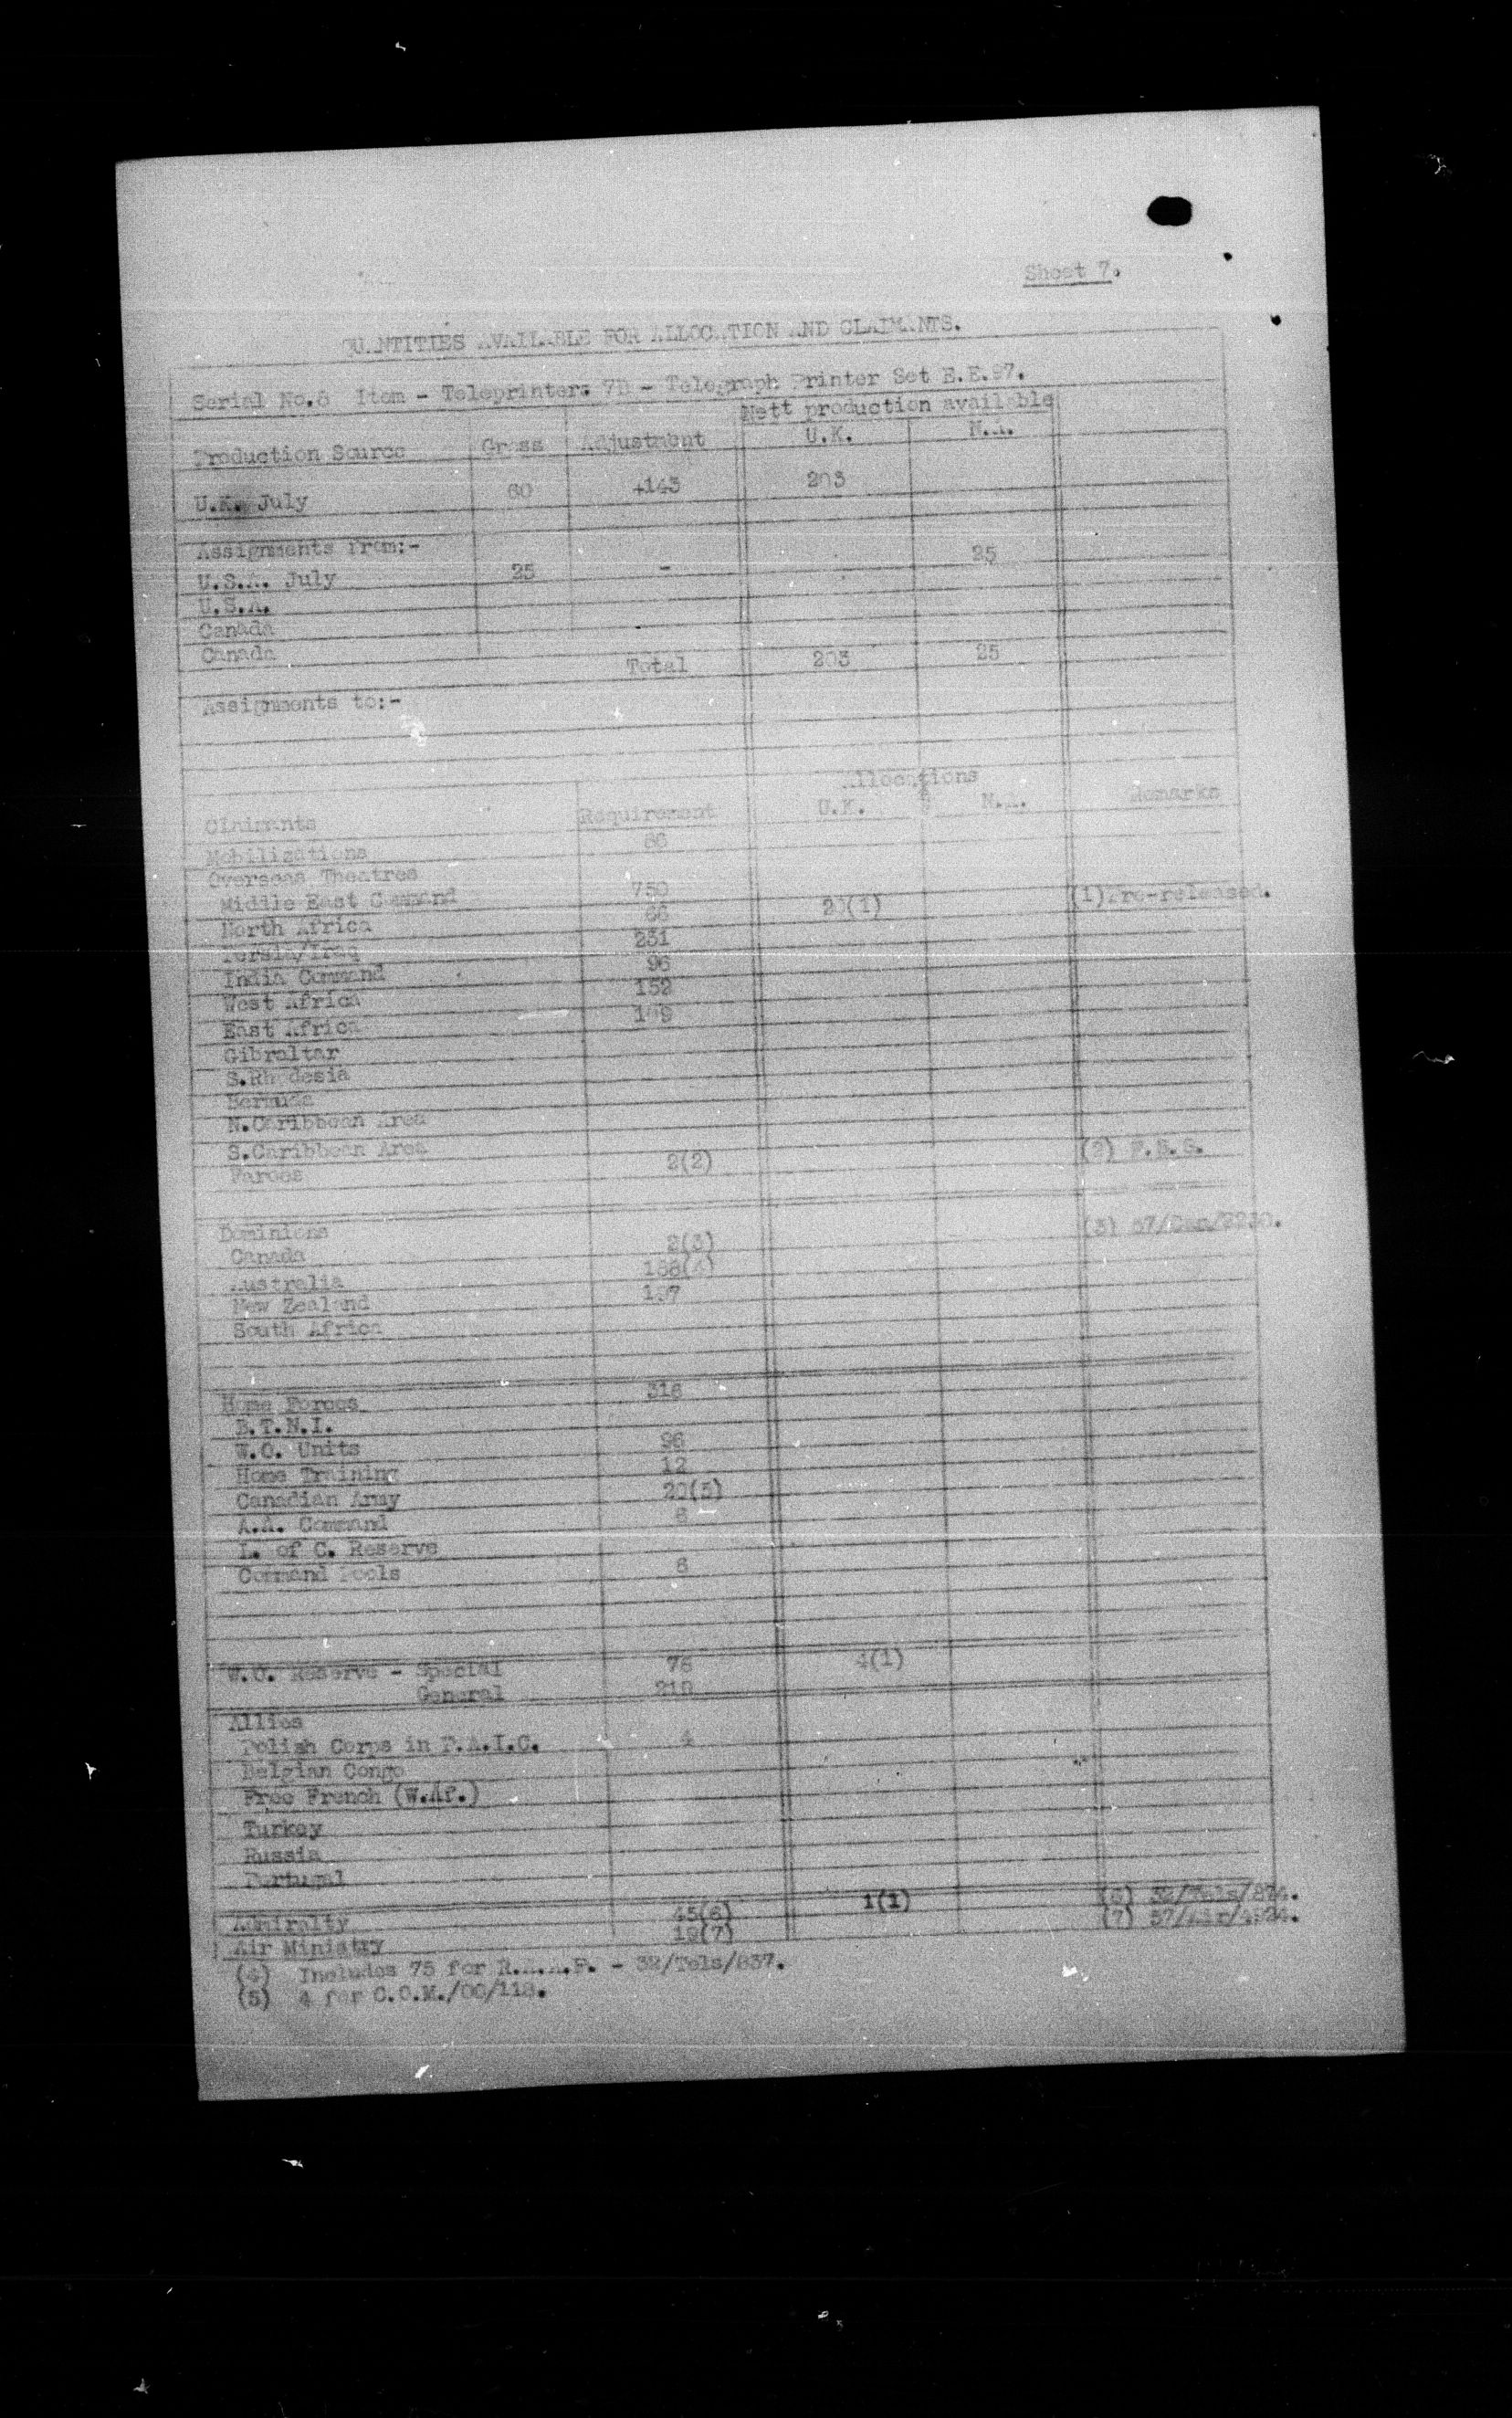 Sheet 7.
QUANTITIES AVAILABLE FOR ALLOCATION AND CLAIMANTS.
Serial No.8 Item - Teleprinters 7B - Telegraph Printer Set E.E.97.
Nett production available
Production Source Gross Adjustment U.K. N.A.
U.K. July 60 +143 203
Assignments from:-
U.S.A. July 25 - 25
U.S.A.
Canada
Canada
Total 203 25
Assignments to:-
Allocations
Claimants Requirement U.K. N.A. Remarks
Mobilizations 66
Overseas Theatres
Middle East Command 750 20(1) (1)Pre-released.
North Africa 66
Persia/Iraq 231
India Command 96
West Africa 152
East Africa
Gibraltar
S.Rhodesia
Bermuda
N.Caribbean Area
S.Caribbean Area
Faroes 2(2) (2) F.B.S.
Dominions
Canada 2(3) (3) 57/Can/2230.
Australia 188(4)
New Zealand
South Africa
Home Forces 316
B.T.N.I.
W.O. Units 96
Home Training 12
Canadian Army 20(5)
A.A. Command 6
L. of C. Reserve
Command Pools 6
W.O. Reserve - Special 76 4(1)
General 219
Allies
Polish Corps in P.A.I.C. 4
Belgian Congo
Free French (W.Af.)
Turkey
Russia
Portugal
Admiralty 45(6) 1(1) (6) 32/Tels/874.
Air Ministry 19(7) (7) 57/Air/4924.
(4) Includes 75 for R.A.A.F. - 32/Tels/837.
(5) 4 for C.O.M./OC/118.